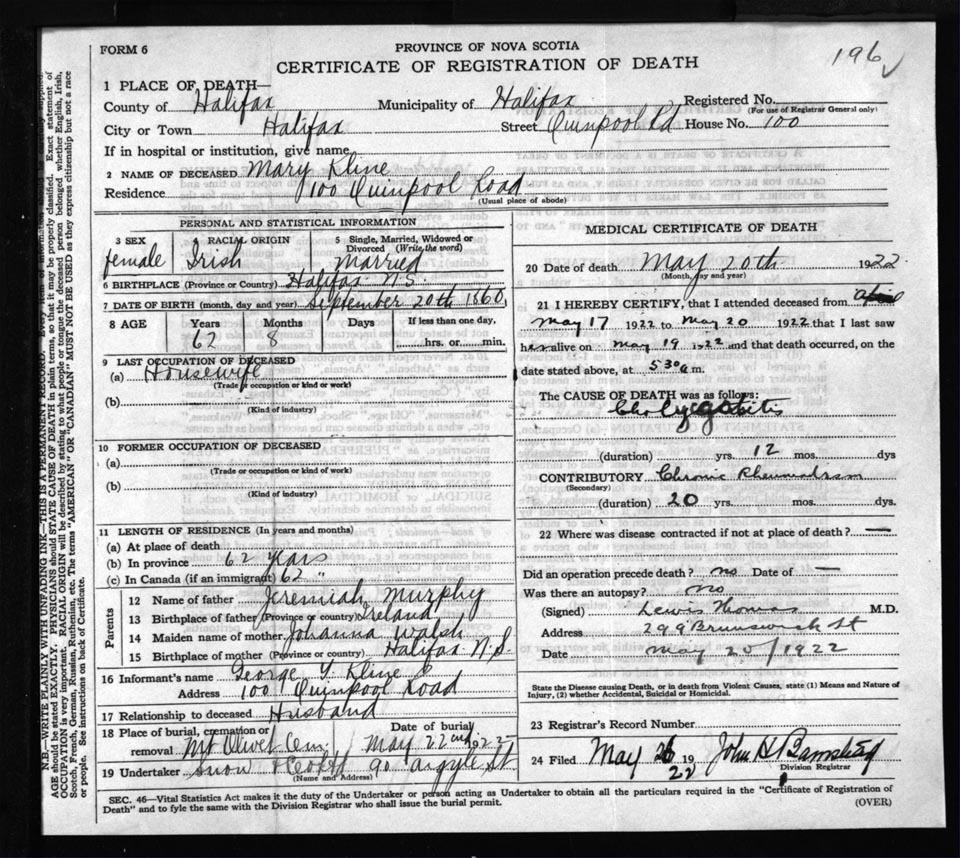 FORM 6
PROVINCE OF NOVA SCOTIA
CERTIFICATE OF REGISTRATION OF DEATH
196
1 PLACE OF DEATH—
County of Halifax Municipality of Halifax Registered No.
(For use of Registrar General only)
City or Town Halifax Street Quinpool Rd House No. 100
If in hospital or institution, give name
2 NAME OF DECEASED Mary Kline
Residence 100 Quinpool Road
(Usual place of abode)
PERSONAL AND STATISTICAL INFORMATION
3 SEX 4 RACIAL ORIGIN 5 Single, Married, Widowed or Divorced (Write the word)
female Irish Married
6 BIRTHPLACE (Province or Country) Halifax N S.
7 DATE OF BIRTH (month, day and year) September 20th 1860
8 AGE Years Months Days If less than one day,
62 8 hrs. or min.
9 LAST OCCUPATION OF DECEASED
(a) Housewife
(Trade or occupation or kind or work)
(b)
(Kind of industry)
10 FORMER OCCUPATION OF DECEASED
(a)
(Trade or occupation or kind or work)
(b)
(Kind of industry)
11 LENGTH OF RESIDENCE (In years and months)
(a) At place of death
(b) In province 62 years
(c) In Canada (if an immigrant) 62 "
Parents
12 Name of father Jeremiah Murphy
13 Birthplace of father (Province or country) Ireland
14 Maiden name of mother Johanna Walsh
15 Birthplace of mother (Province or country) Halifax N.S.
16 Informant's name George Kline
Address 100 Quinpool Road
17 Relationship to deceased Husband
18 Place of burial, cremation or removal Mt Olivet Cem Date of burial May 22nd 1922
19 Undertaker Snow 90 Argyle St
(Name and Address)
MEDICAL CERTIFICATE OF DEATH
20 Date of death May 20th 1922
(Month, day and year)
21 I HEREBY CERTIFY, that I attended deceased from
May 17 1922 to May 20 1922 that I last saw
her alive on May 19 1922 and that death occurred, on the
date stated above, at 5 30 a m.
The CAUSE OF DEATH was as follows:
(duration) yrs. 12 mos. dys
CONTRIBUTORY Chronic Rheumatism
(Secondary)
(duration) 20 yrs. mos. dys.
22 Where was disease contracted if not at place of death? —
Did an operation precede death? no Date of —
Was there an autopsy? no
(Signed) Lewis Thomas M.D.
Address 299 Brunswick St
Date May 20/1922
State the Disease causing Death, or in death from Violent Causes, state (1) Means and Nature of
Injury, (2) whether Accidental, Suicidal or Homicidal.
23 Registrar's Record Number
24 Filed May 26 1922 John H
Division Registrar
SEC. 46—Vital Statistics Act makes it the duty of the Undertaker or person acting as Undertaker to obtain all the particulars required in the "Certificate of Registration of
Death" and to fyle the same with the Division Registrar who shall issue the burial permit.
(OVER)
N.B.—WRITE PLAINLY WITH UNFADING INK—THIS IS A PERMANENT RECORD. Every item of information should be carefully supplied.
AGE should be stated EXACTLY. PHYSICIANS should STATE CAUSE OF DEATH in plain terms, so that it may be properly classified. Exact statement of
OCCUPATION is very important. RACIAL ORIGIN will be described by stating to what people or tongue the deceased person belonged whether English, Irish,
Scotch, French, German, Russian, Ruthenian, etc. The terms "AMERICAN" or "CANADIAN" MUST NOT BE USED as they express citizenship but not a race
or people. See instructions on back of Certificate.